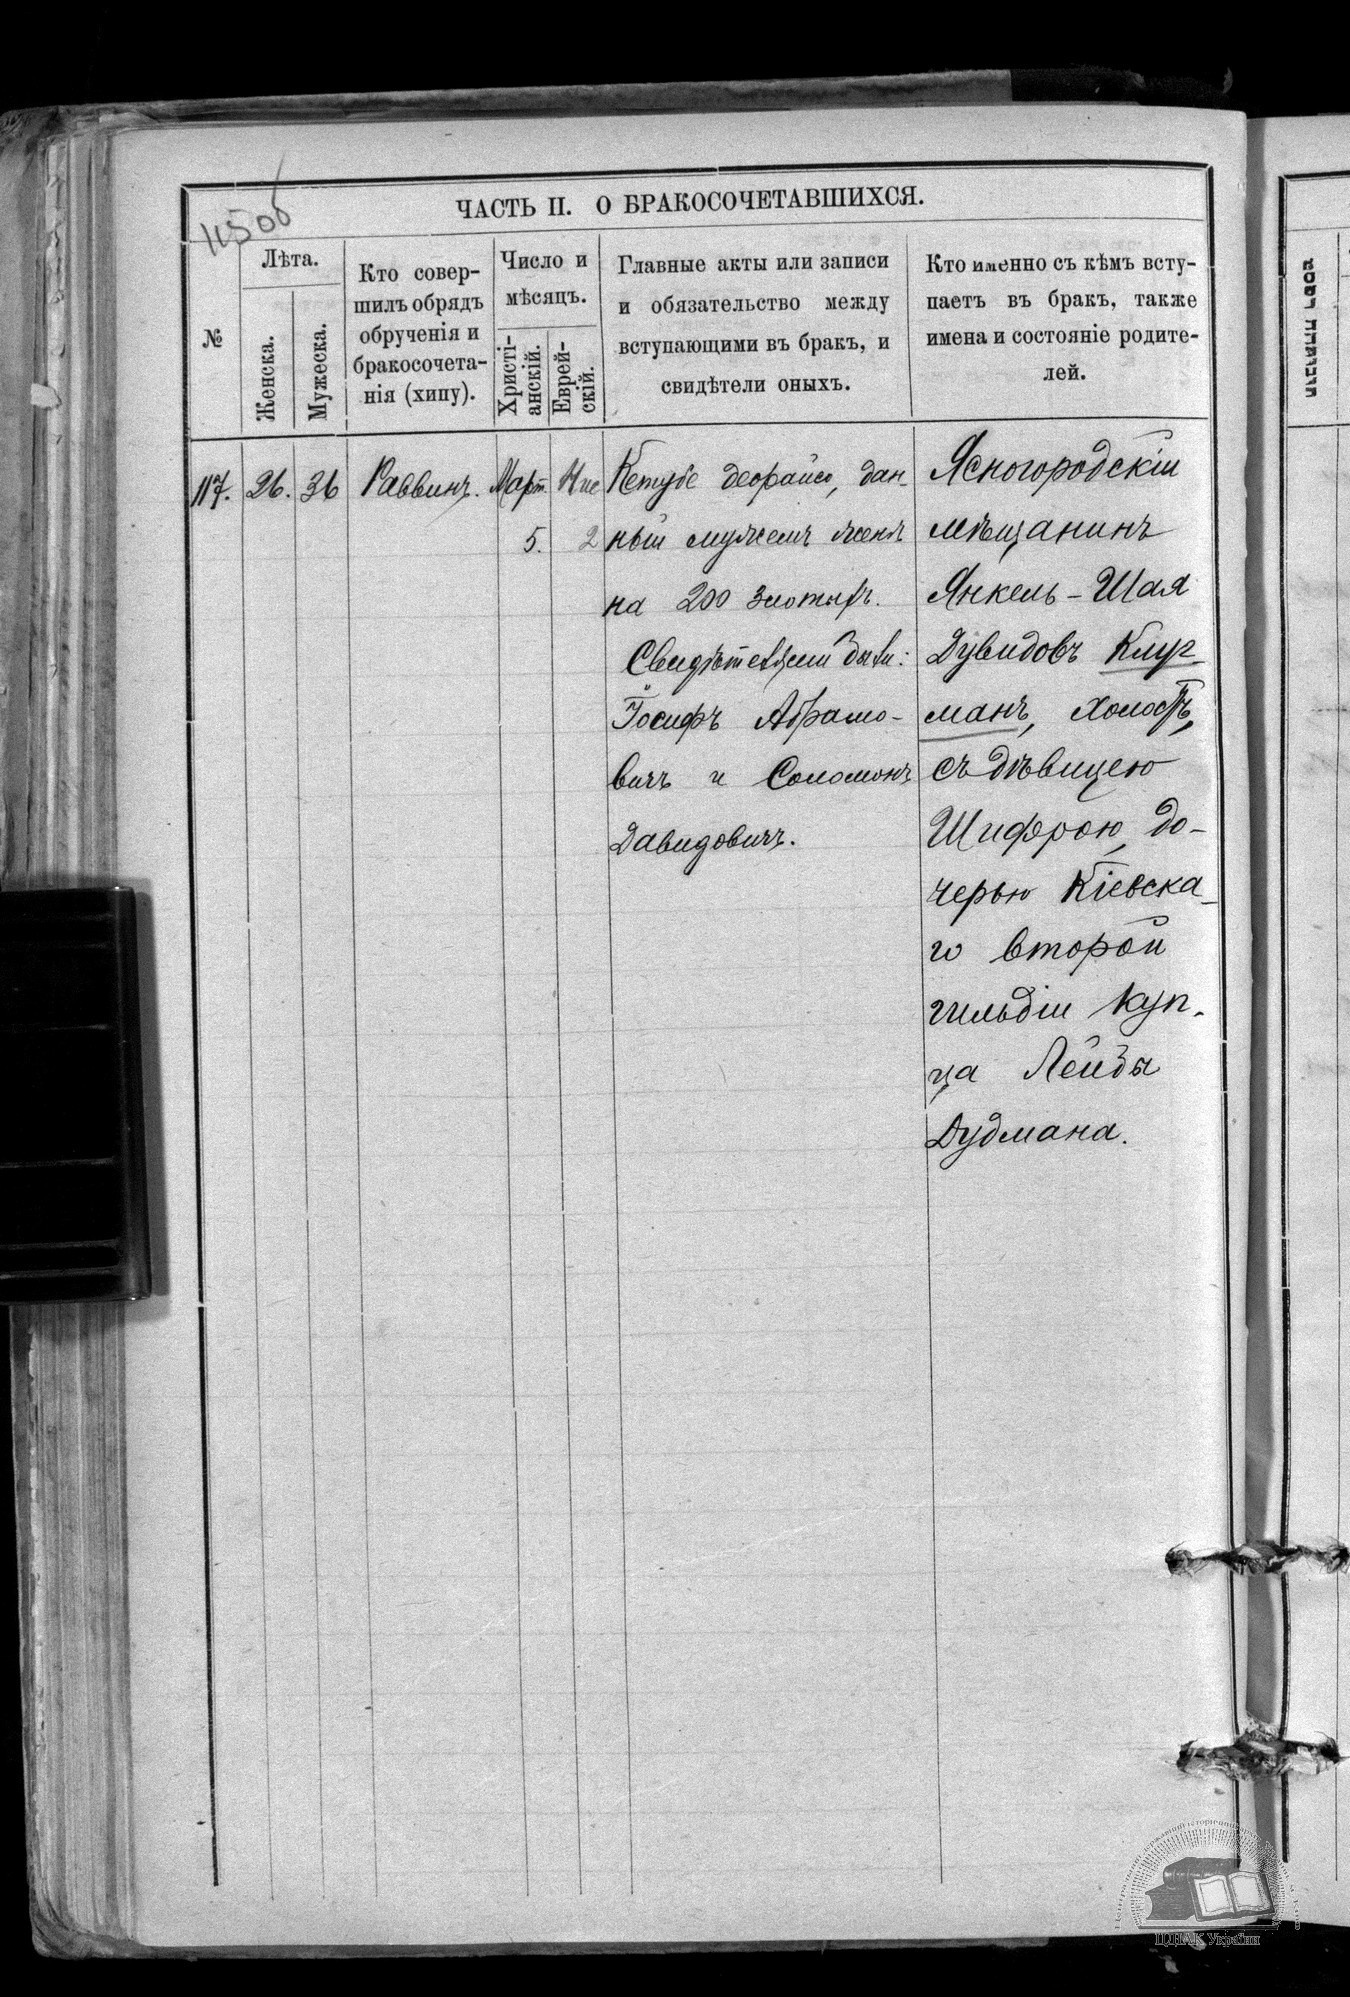 115об
ЧАСТЬ II. О БРАКОСОЧЕТАВШИХСЯ.
№
Лѣта.
Женска.
Мужеска.
Кто совер-
шилъ обрядъ
обрученія и
бракосочета-
нія (хипу).
Число и
мѣсяцъ.
Христі-
анскій.
Еврей-
скій.
Главные акты или записи
и обязательство между
вступающими въ бракъ, и
свидѣтели оныхъ.
Кто именно съ кѣмъ всту-
паетъ въ бракъ, также
имена и состояніе родите-
лей.
117. 26. 36 Раввинъ. Март. Нис
5. 2
Кетубе деорайсо, дан-
ный мужемъ женѣ
на 200 злотыхъ.
Свидѣтелями были:
Іосифъ Абрамо-
вичъ и Соломонъ
Давидовичъ.
Ясногородскій
мѣщанинъ
Янкель-Шая
Дувидовъ Клуг-
манъ, холостъ,
съ дѣвицею
Шифрою, до-
черью Кіевска-
го второй
гильдіи куп-
ца Лейбы
Дудмана.
ЦДІАК України